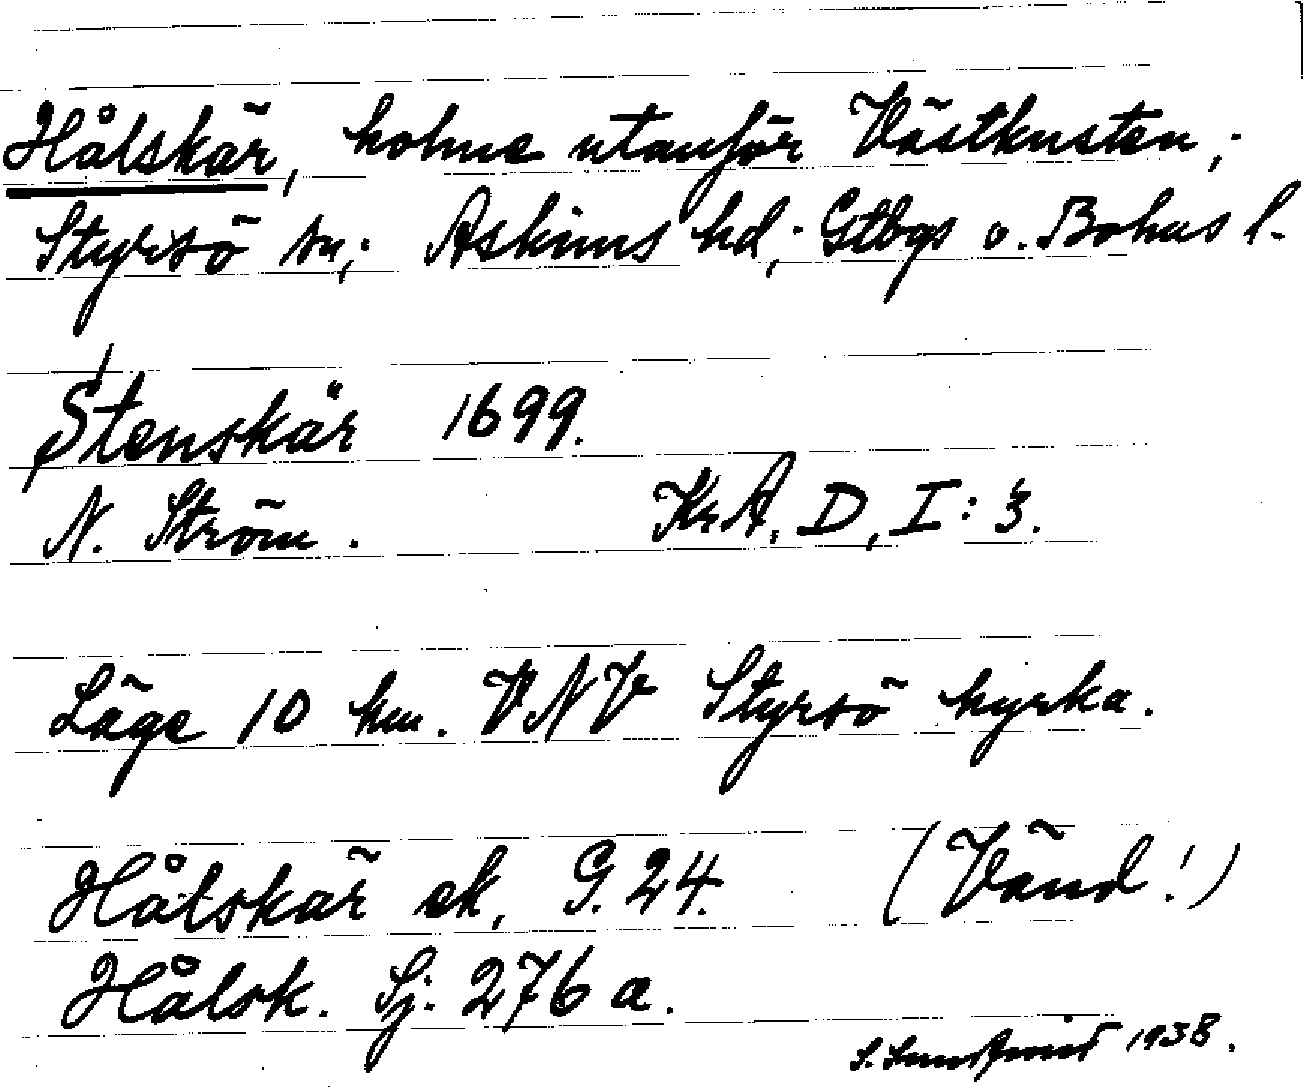 Hålskär, holme utanför Västkusten,;
Styrsö sn,; Askims hd,; Gtbgs o. Bohus l.
Stenskär 1699.
N. Ström. KrA, D, I: 3.
Läge 10 km. VNV Styrsö kyrka.
Hålskär ek, G. 24. (Vänd!)
Hålsk. Sj. 276 a.
S. 1938.